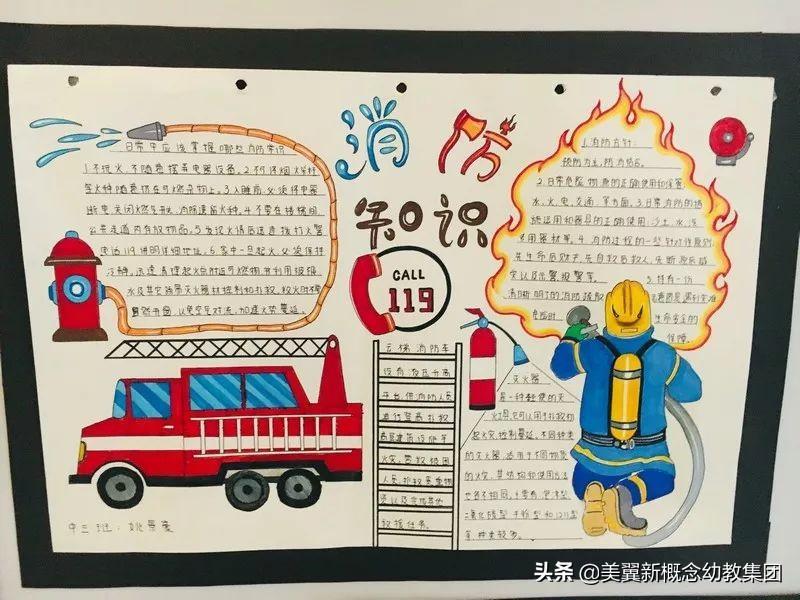 消防
知识
CALL
119
日常中应该掌握哪些消防常识
1.不玩火、不随意摆弄电器设备。2.不可将烟火
等火种随意扔在可燃杂物上。3.入睡前,必须将电器
断电、关闭燃气开关、消除遗留火种。4.不要在楼梯间、
公共走道内存放物品。5.发现火情后迅速拨打火警
电话119,讲明详细地址。6.家中一旦起火,必须保持
冷静,迅速清理起火点附近可燃物,并利用被褥、
水及其它简易灭火器材控制和扑救,救火时不要
贸然开窗,以免空气对流,加速火势蔓延。
1.消防方针:
预防为主,防消结合。
2.日常危险物质的正确使用和保管
水、火、电、交通、等方面。3.日常消防的措
施运用和器具的正确使用:沙土、水、泡
4.消防过程的一些针对性原则:
先生命后财产,先自救后救人,先断源后救
灾以及示警、报警等。5.持有一份
生命安全的
保障。
云梯消防车
设有液压升高
平台,供消防人员
进行登高扑救
高层建筑
火灾,营救被困
人员,抢救贵重物
资以及完成其他
救援任务。
灭火器
是一种轻便的灭
火工具,它可以用于扑救初
起火灾,控制蔓延。不同种类
的灭火器,适用于不同物质
的火灾,其结构和使用方法
也各不相同。
二氧化碳型、干粉型和1211型
等,种类较多。
中三班:姚景豪
头条 @美翼新概念幼教集团